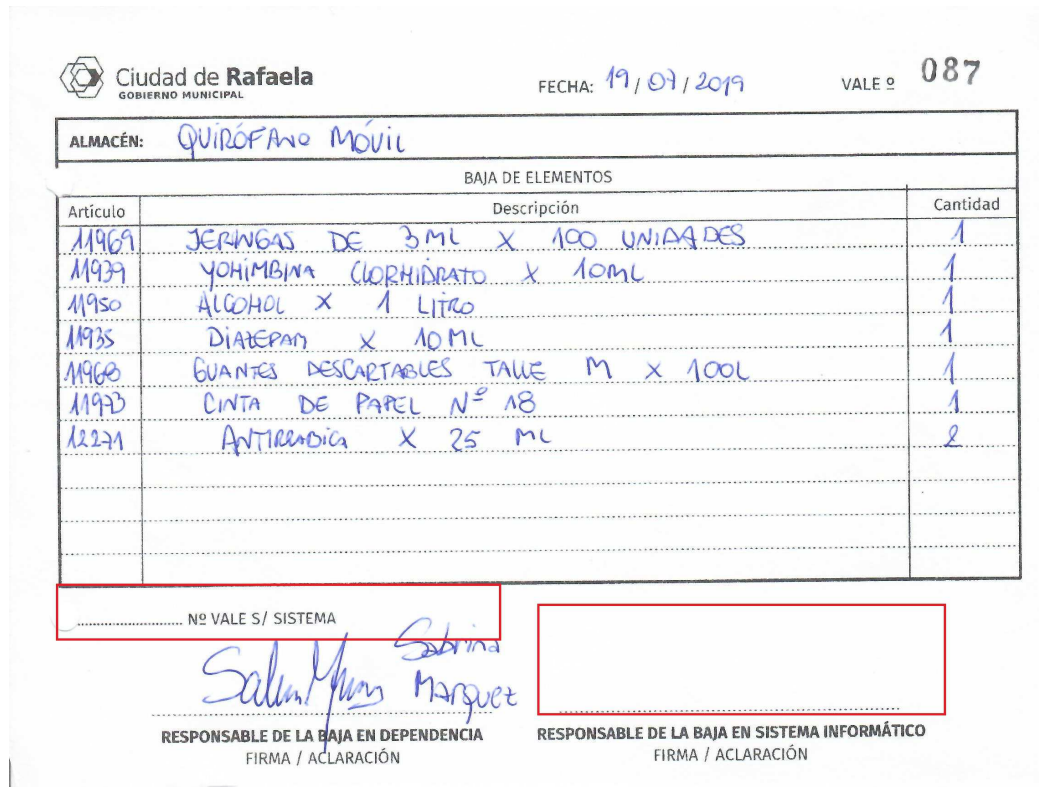 Ciudad de Rafaela
GOBIERNO MUNICIPAL
FECHA: 19/07/2019
VALE º 087
ALMACÉN: QUIRÓFANO MÓVIL
BAJA DE ELEMENTOS
Artículo Descripción Cantidad
11969 JERINGAS DE 3ML X 100 UNIDADES 1
11939 YOHIMBINA CLORHIDRATO X 10ML 1
11950 ALCOHOL X 1 LITRO 1
11935 DIAZEPAM X 10 ML 1
11968 GUANTES DESCARTABLES TALLE M X 100L 1
11973 CINTA DE PAPEL Nº 18 1
12271 ANTIRRABICA X 25 ML 2
Nº VALE S/ SISTEMA
Sabrina
Marquez
RESPONSABLE DE LA BAJA EN DEPENDENCIA
FIRMA / ACLARACIÓN
RESPONSABLE DE LA BAJA EN SISTEMA INFORMÁTICO
FIRMA / ACLARACIÓN